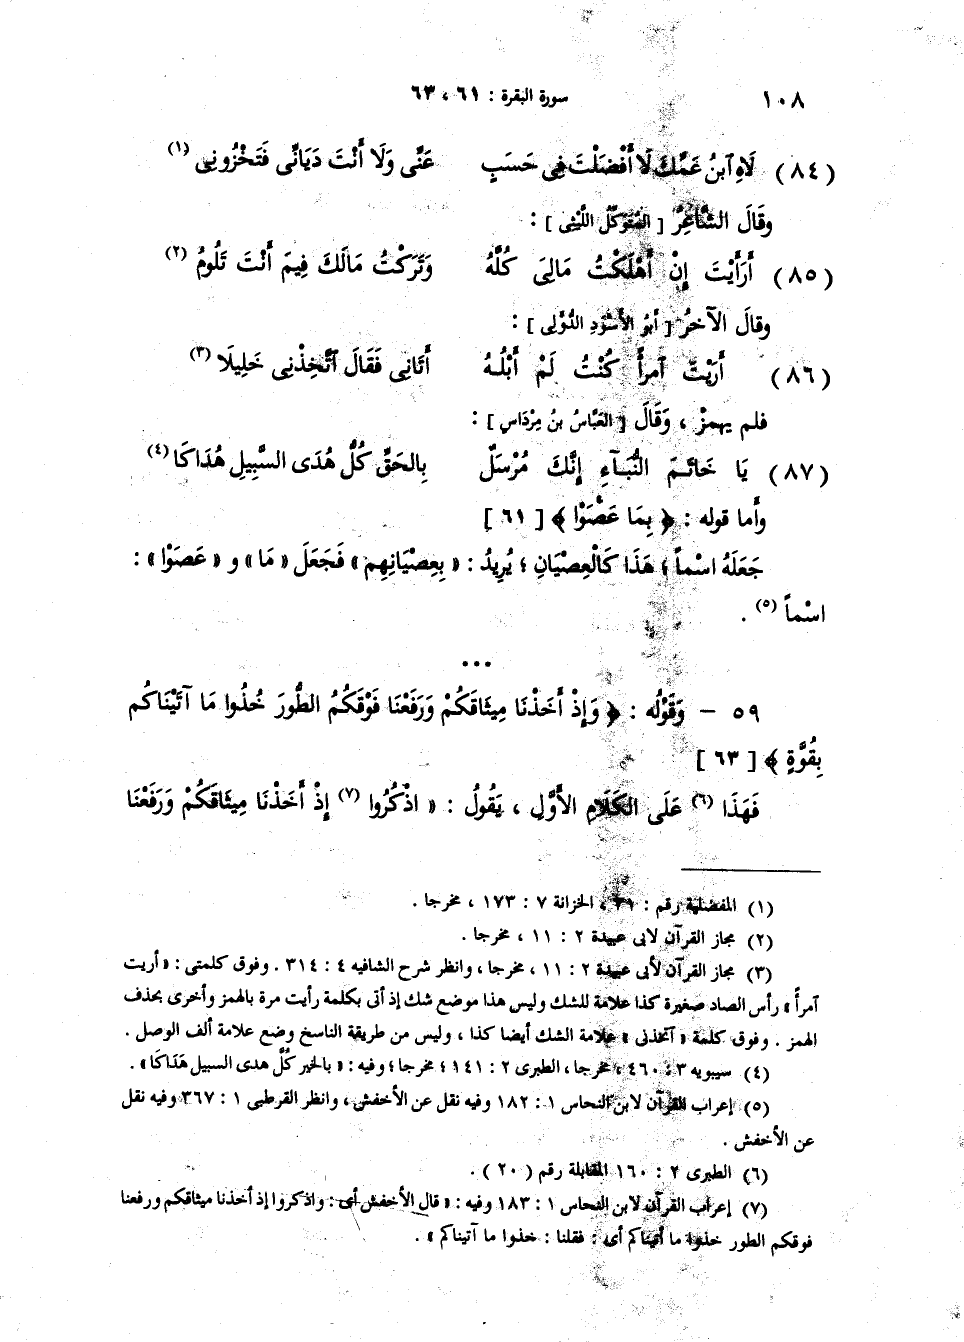 ١٠٨ سورة البقرة : ٦١ ، ٦٣
( ٨٤ ) لَاهِ ٱبنُ عَمِّكَ لَا أَفْضَلْتَ فِى حَسَبٍ عَنِّى وَلَا أَنْتَ دَيَانِّى فَتَخْزُونِى (١)
وقَالَ الشَّاعِرُ [ المُتَوَكِّلُ اللَّيْثِى ] :
( ٨٥ ) أَرَأَيْتَ إِنْ أَهْلَكْتُ مَالِىَ كُلَّهُ وَتَرَكْتُ مَالَكَ فِيمَ أَنْتَ تَلُومُ (٢)
وقالَ الآخرُ [ أَبُو الأَسْوَدِ الدُّوَلِى ] :
( ٨٦ ) أَرَيْتَ ٱمرأً كُنْتُ لَمْ أَبْلُهُ أَتَانِى فَقَالَ ٱتَّخِذْنِى خَلِيلَا (٣)
فلم يهمزْ ، وَقَالَ [ العَبَّاسُ بنُ مِرْدَاسٍ ] :
( ٨٧ ) يَا خَاتَمَ النُّبَآءِ إِنَّكَ مُرْسَلٌ بِالحَقِّ كُلُّ هُدَى السَّبِيلِ هُدَاكَا (٤)
وأَما قوله : ﴿ بِمَا عَصَوْا ﴾ [ ٦١ ]
جَعَلَهُ اسْماً ؛ هَذَا كَالْعِصْيَانِ ؛ يُرِيدُ : « بِعِصْيَانِهِم » فَجَعَلَ « مَا » و « عَصَوْا » :
اسْماً (٥) .
...
٥٩ – وَقَوْلُه : ﴿ وَإِذْ أَخَذْنَا مِيثَاقَكُمْ وَرَفَعْنَا فَوْقَكُمُ الطُّورَ خُذُوا مَا آتَيْنَاكُم
بِقُوَّةٍ ﴾ [ ٦٣ ]
فَهَذَا (٦) عَلَى الكَلَامِ الأَوَّلِ ، يَقُولُ : « اذْكُرُوا (٧) إِذْ أَخَذْنَا مِيثَاقَكُمْ وَرَفَعْنَا
(١) المفضلية رقم : ٣١ ، الخزانة ٧ : ١٧٣ ، مخرجا .
(٢) مجاز القرآن لابى عبيدة ٢ : ١١ ، مخرجا .
(٣) مجاز القرآن لأبى عبيدة ٢ : ١١ ، مخرجا ، وانظر شرح الشافيه ٤ : ٣١٤ . وفوق كلمتى : « أريت
آمرأً » رأس الصاد صغيرة كذا علامة للشك وليس هذا موضع شك إذ أتى بكلمة رأيت مرة بالهمز وأخرى بحذف
الهمز . وفوق كلمة « آتخذنى » علامة الشك أيضا كذا ، وليس من طريقة الناسخ وضع علامة ألف الوصل .
(٤) سيبويه ٣ : ٤٦٠ ، مخرجا ، الطبرى ٢ : ١٤١ ؛ مخرجا ؛ وفيه : « بالخير كُلُّ هدى السبيل هَدَاكَا » .
(٥) إعراب القرآن لابن النحاس ١ : ١٨٢ وفيه نقل عن الأخفش ، وانظر القرطبى ١ : ٣٦٧ وفيه نقل
عن الأخفش .
(٦) الطبرى ٢ : ١٦٠ المقابلة رقم ( ٢٠ ) .
(٧) إعراب القرآن لابن النحاس ١ : ١٨٣ وفيه : « قال الأخفش أى : واذكروا إذ أخذنا ميثاقكم ورفعنا
فوقكم الطور خذوا ما أتيناكم أى : فقلنا : خذوا ما آتيناكم » .